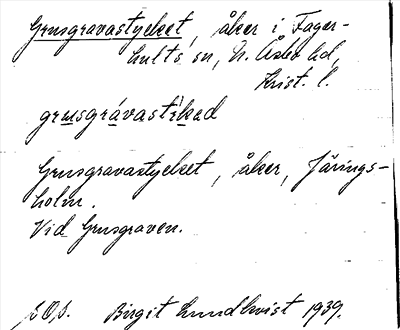 Grusgravastycket, åker i Fager-
hults sn, N. Åsbo hd,
Krist. l.
grusgrávastikad
Grusgravastycket, åker, Järings-
holm.
Vid Grusgraven.
Birgit Lundkvist 1939.